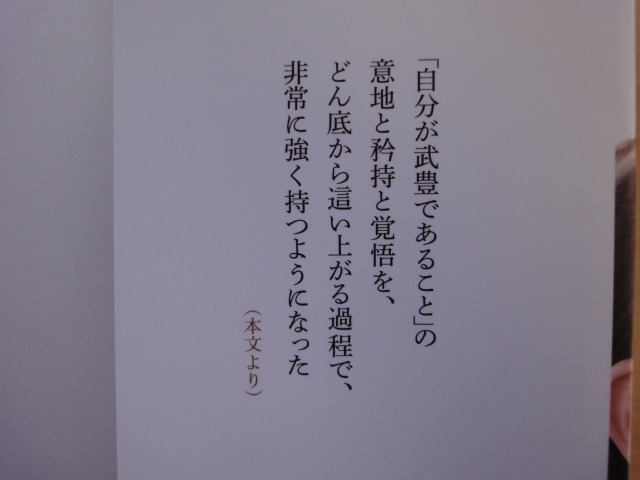 「自分が武豊であること」の
意地と矜持と覚悟を、
どん底から這い上がる過程で、
非常に強く持つようになった
（本文より）